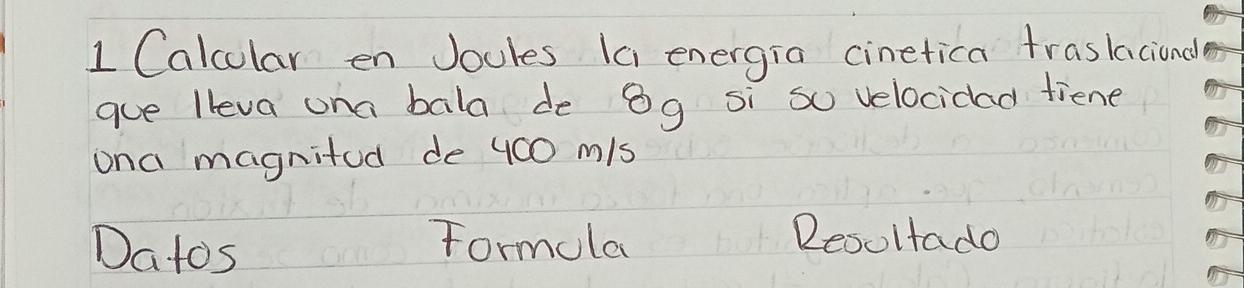 1 Calcular en Joules la energia cinetica traslacional
que lleva una bala de 8g si su velocidad tiene
una magnitud de 400 m/s
Datos Formula Resultado